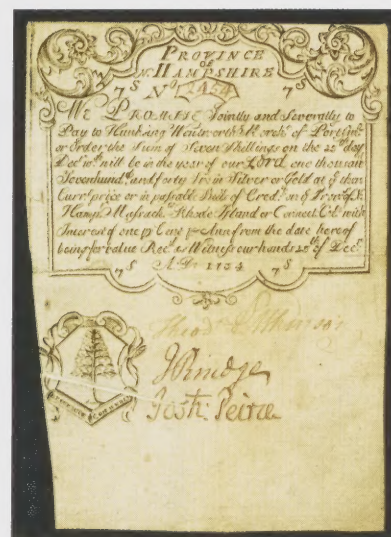 PROVINCE
OF
N: HAMPSHIRE
7S No 7S
WE PROMISE Jointly and Severally to
Pay to Hunking Wentworth of
or Order the Sum of Seven Shillings on the 22th day
Decr wch will be in the year of our LORD one thousand
Sevenhundd and forty in Silver or Gold at ye then
Currt price or in passable Bills of Credt on ye Provce of N:
Hampr Massach: Rhode Island or Connect: Col: with
Interest of one pr Cent pr Ann from the date hereof
being for value Recd as Witness our hands 22th of Decr
7S A:D: 1734 7S
Theod Atkinson
JRindge
Josh: Peirce